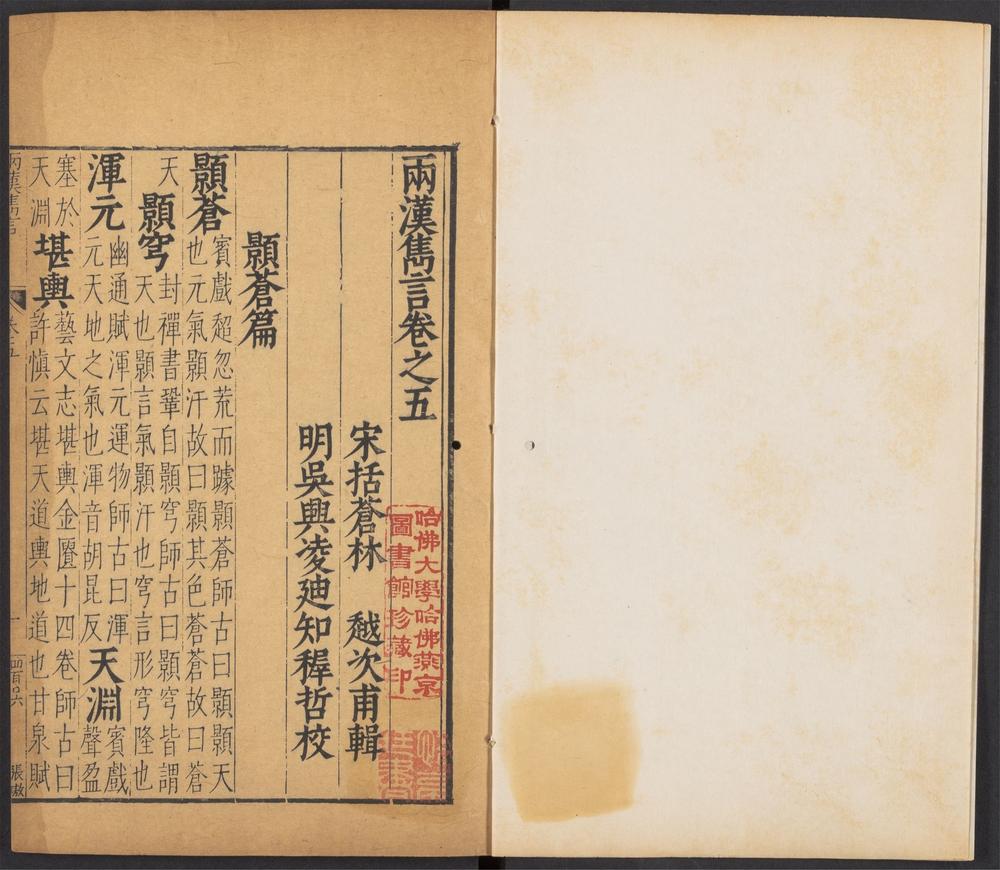 兩漢雋言卷之五
宋括蒼林 越次甫輯
明吳興凌廸知穉哲校
顥蒼篇
顥蒼賓戲超忽荒而躆顥蒼師古曰顥顥天
也元氣顥汗故曰顥其色蒼蒼故曰蒼
天顥穹封禪書肇自顥穹師古曰顥穹皆謂
天也顥言氣顥汗也穹言形穹隆也
渾元幽通賦渾元運物師古曰渾
元天地之氣也渾音胡昆反天淵賓戲
聲盈
塞於
天淵堪輿藝文志堪輿金匱十四卷師古曰
許慎云堪天道輿地道也甘泉賦
兩漢雋言
卷五
一
張敖
哈佛大學哈佛燕京
圖書館珍藏印